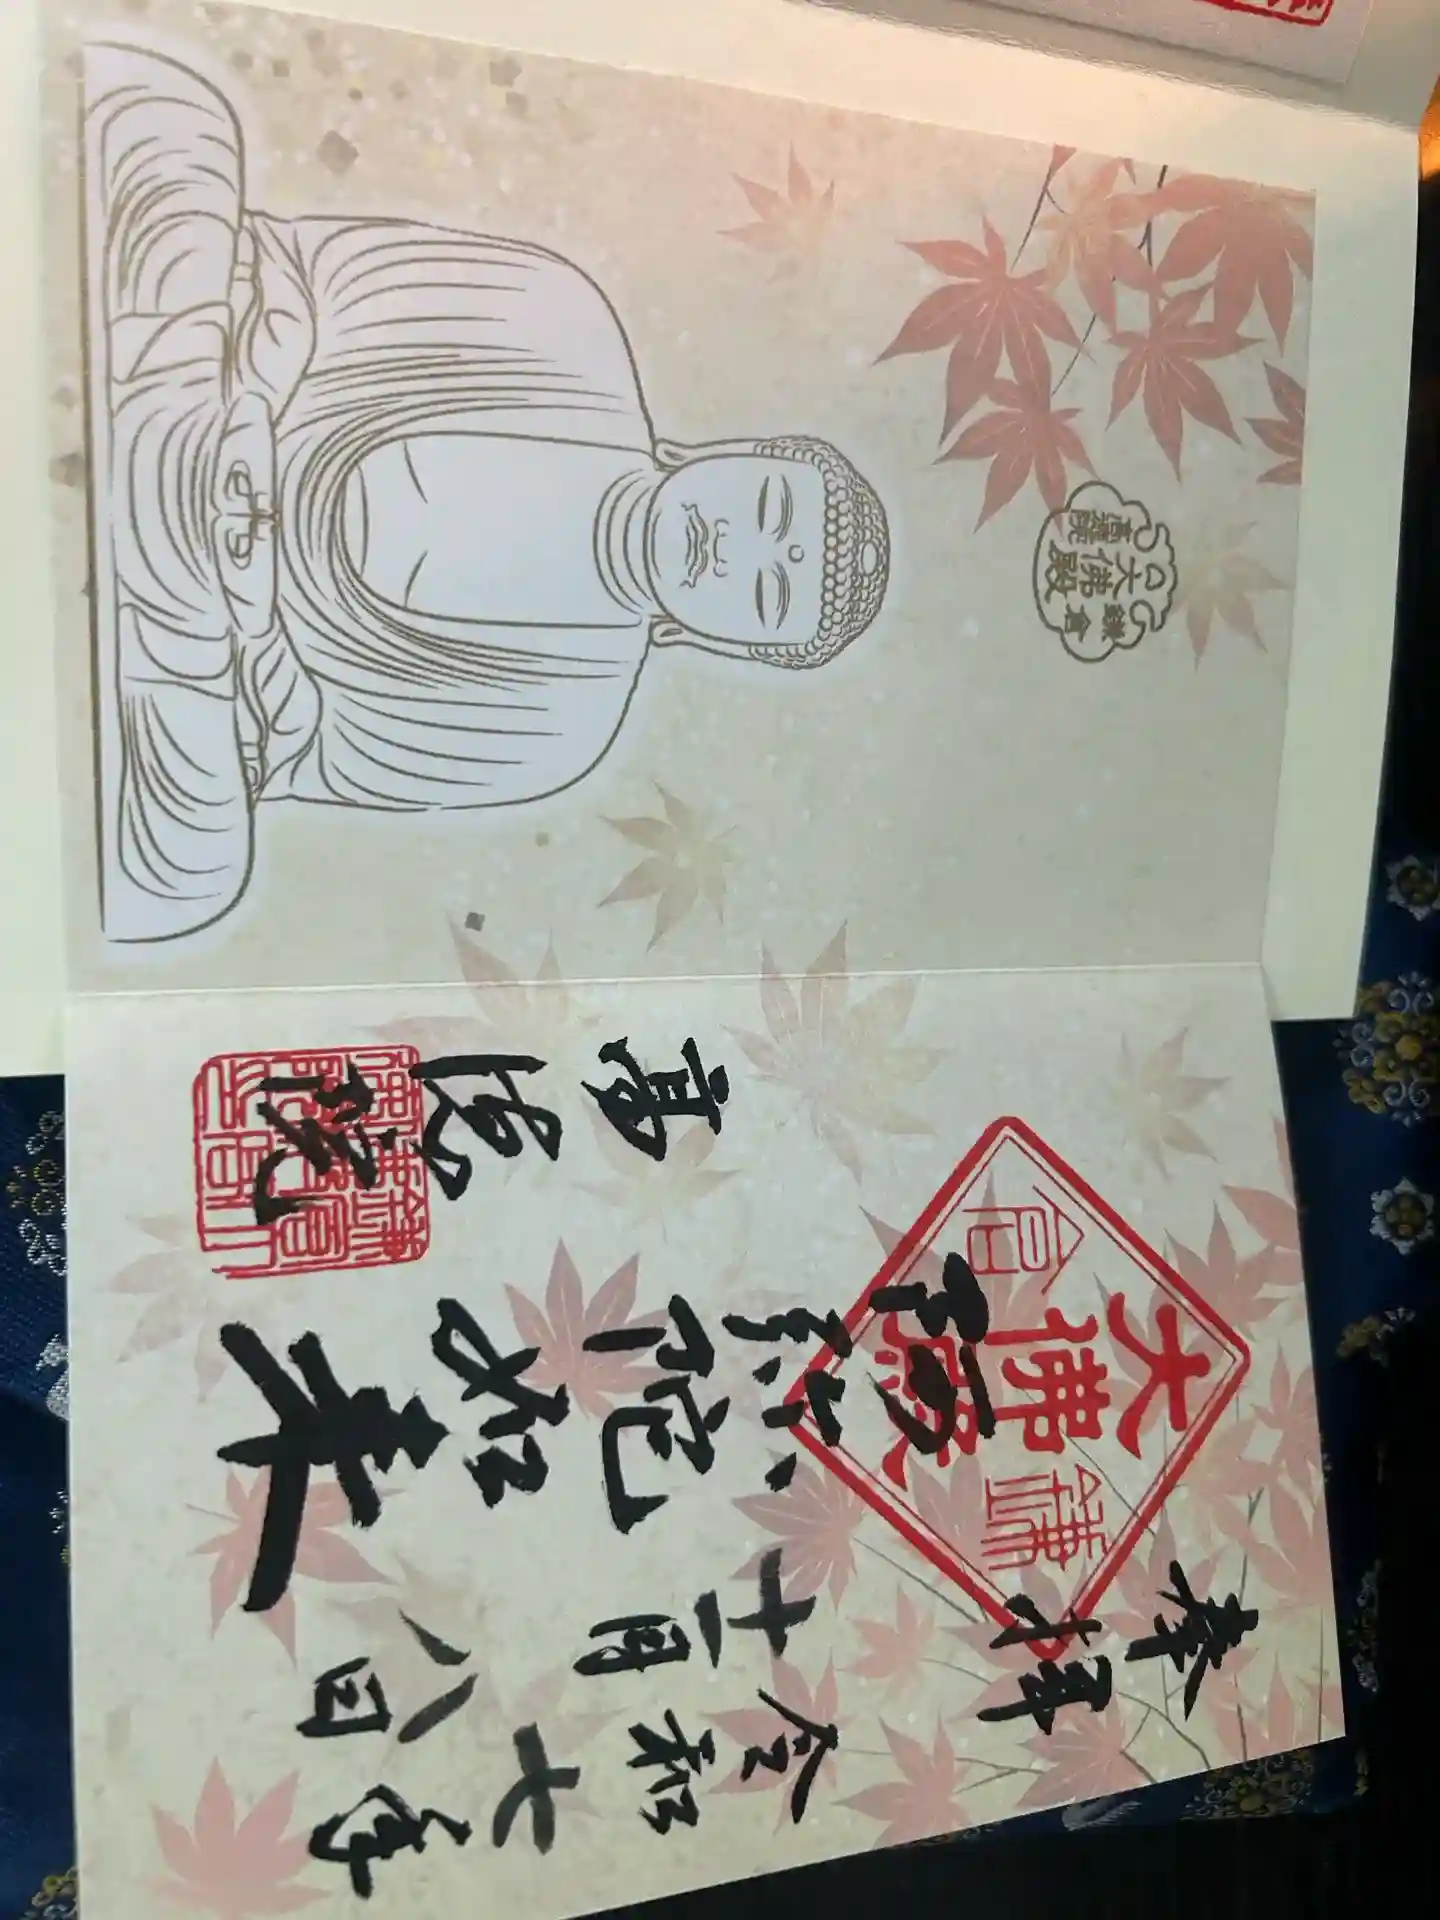 奉拝
令和七年
十二月八日
阿弥陀如来
高徳院
鎌倉
大佛殿
鎌倉
大佛殿
高德院